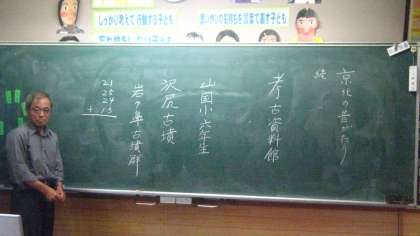 しっかり考えて 行動する子ども
思いやりの気持ちを 言葉で表す子ども
京北の昔がたり
続
考古資料館
山国小六年生
沢尻古墳
岩ヶ鼻古墳群
21
25
24
+15